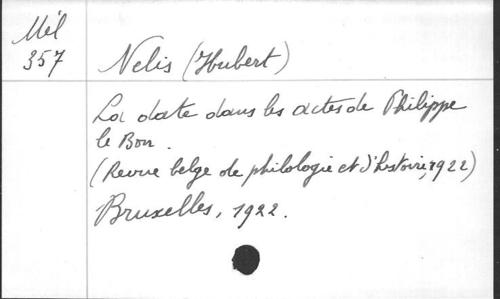 Mél
357
Nelis (Hubert)
La date dans les actes de Philippe
le Bon.
(Revue belge de philologie et d'histoire, 1922)
Bruxelles, 1922.